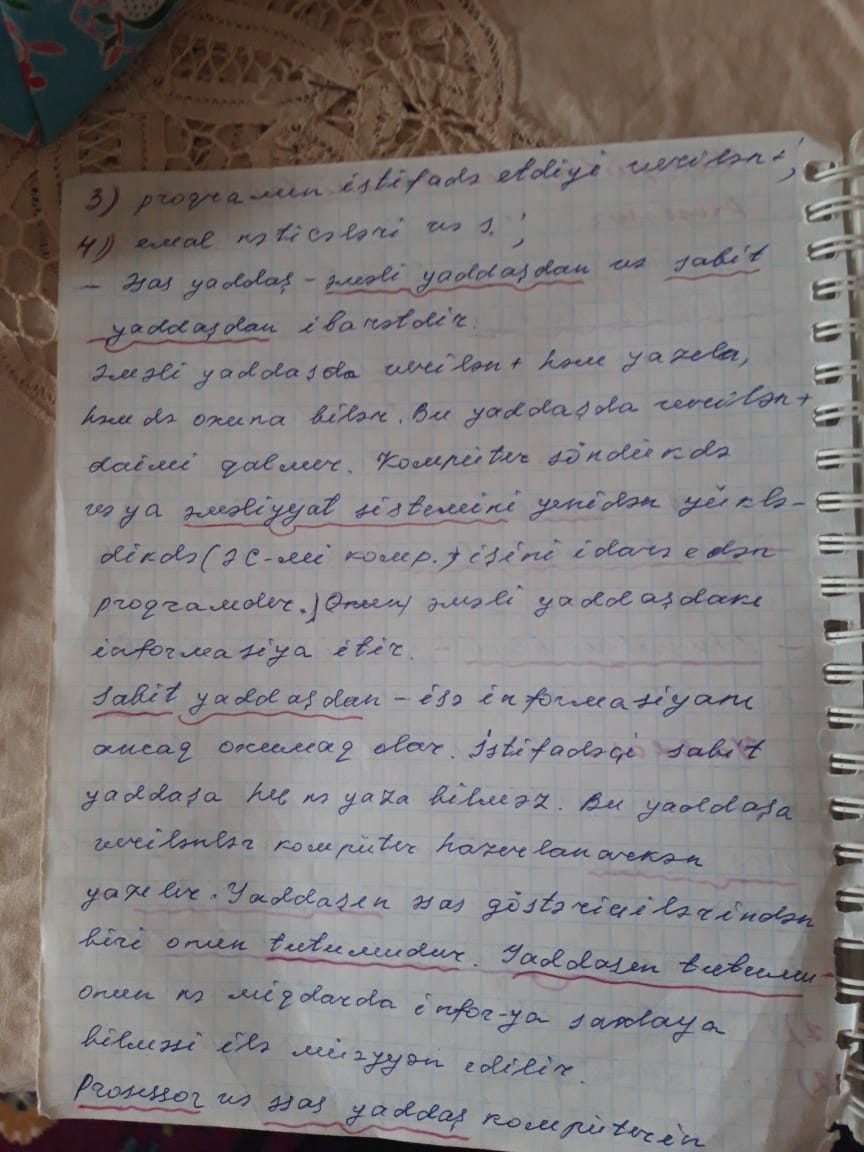 3) proqramın istifadə etdiyi verilən+;
4) emal nəticələri və s.;
– Əsas yaddaş – əməli yaddaşdan və sabit
yaddaşdan ibarətdir.
Əməli yaddaşda verilən+ həm yazıla,
həm də oxuna bilər. Bu yaddaşda verilən+
daimi qalmır. Kompüter söndükdə
və ya əməliyyat sistemini yenidən yüklə-
dikdə (ƏC-mi komp. işini idarə edən
proqramdır.) əməli yaddaşdakı
informasiya itir.
Sabit yaddaşdan – isə informasiyanı
ancaq oxumaq olar. İstifadəçi sabit
yaddaşa heç nə yaza bilməz. Bu yaddaşa
verilənlər kompüter hazırlanarkən
yazılır. Yaddaşın əsas göstəricilərindən
biri onun tutumudur. Yaddaşın tutumu –
onun nə miqdarda infor-ya saxlaya
bilməsi ilə müəyyən edilir.
Prosessor və əsas yaddaş kompüterin